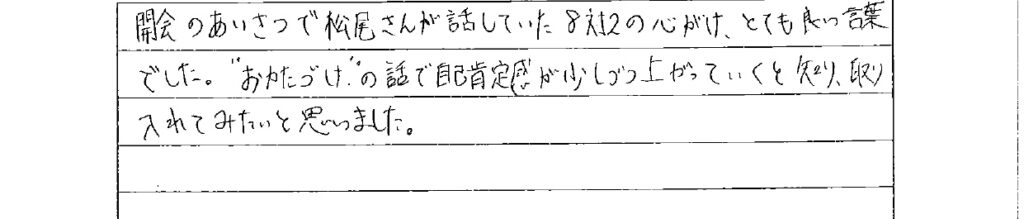 開会のあいさつで松尾さんが話していた8対2の心がけ、とても良い言葉
でした。"おかたづけ"の話で自己肯定感が少しづつ上がっていくと知り、取り
入れてみたいと思いました。